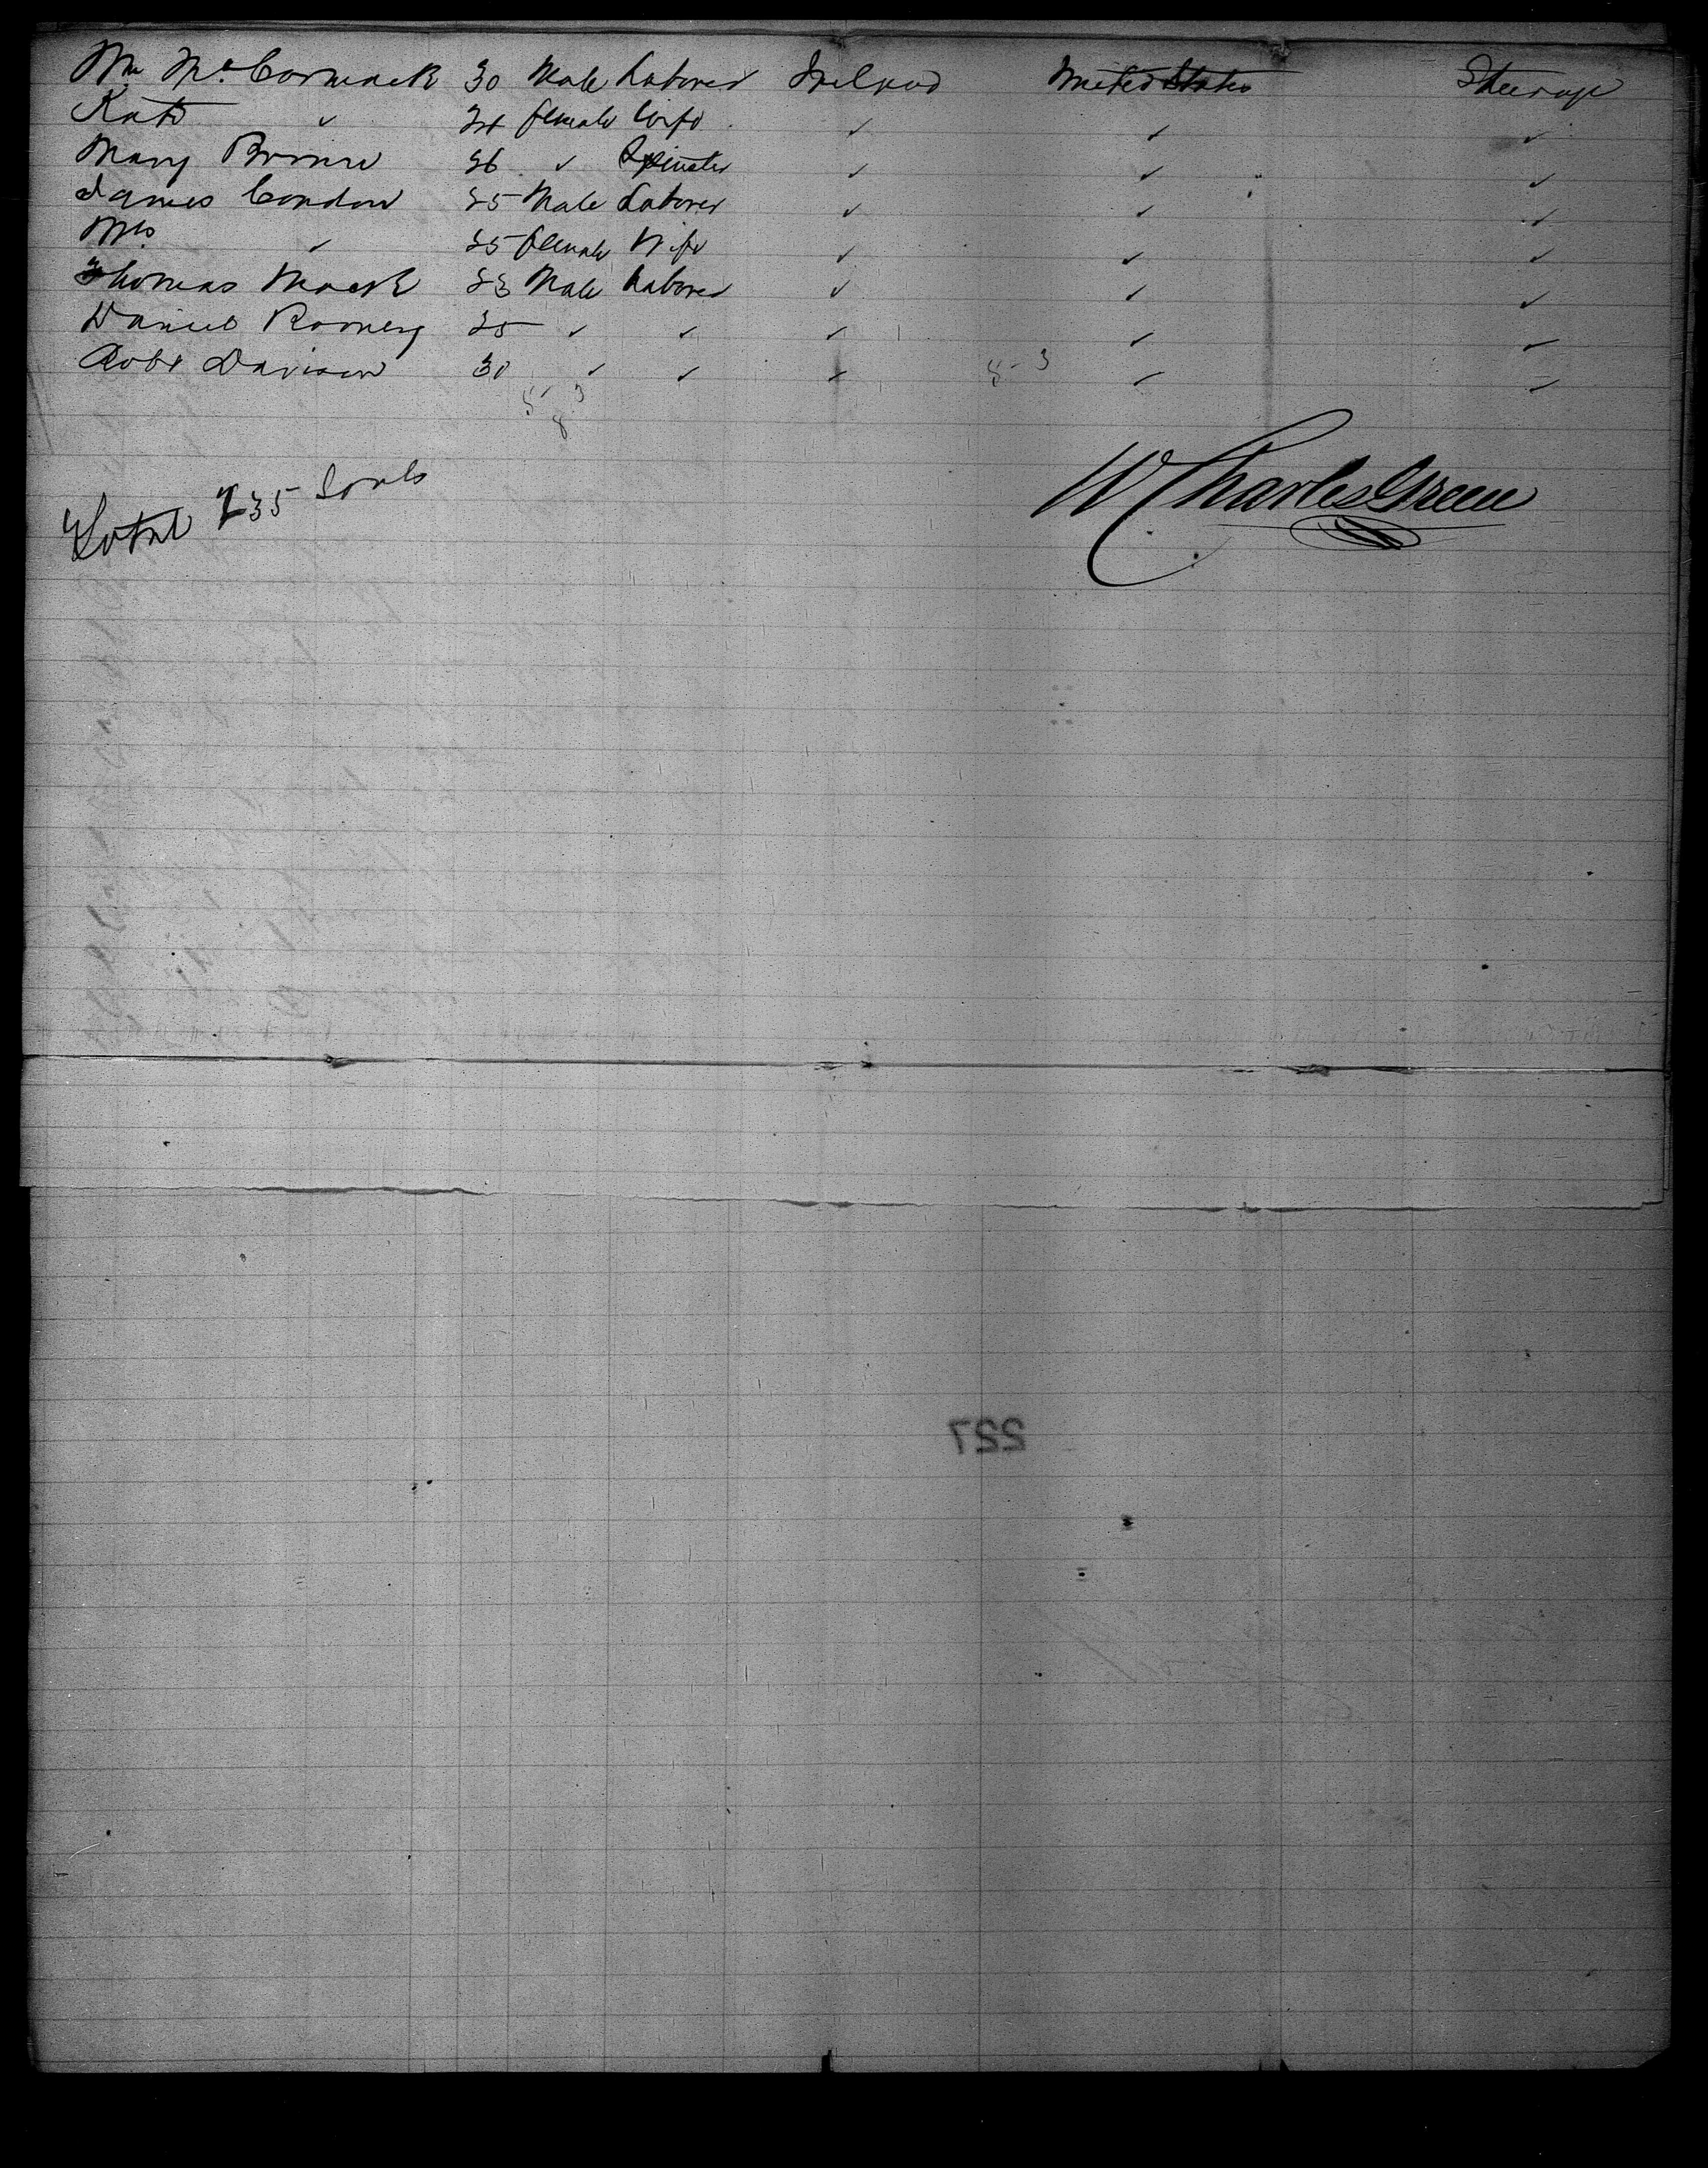 Wm McCormack 30 Male Laborer Ireland United States Steerage
Kate ✓ 24 female Wife ✓ ✓ ✓
Mary Browne 26 ✓ Spinster ✓ ✓ ✓
James Condon 25 Male Laborer ✓ ✓ ✓
Mrs ✓ 25 female Wife ✓ ✓ ✓
Thomas Mack 23 Male Laborer ✓ ✓ ✓
Daniel Rooney 25 ✓ ✓ ✓ ✓ ✓
Robt Davison 30 ✓ ✓ ✓ ✓ ✓
5 3 5 3
8
Total 235 Souls
W Charles Green
227